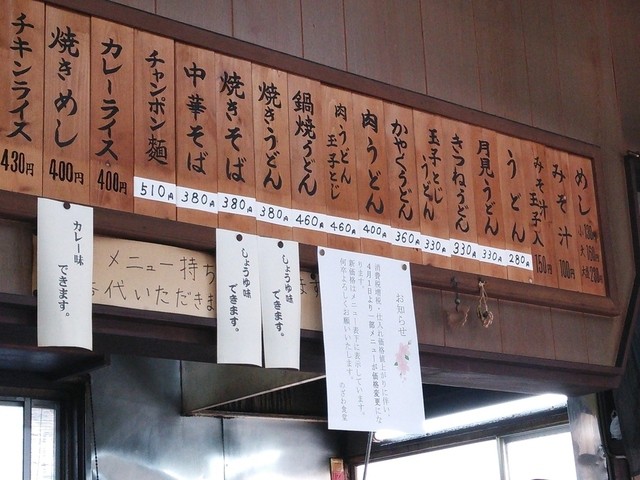 めし
小 130円
大 160円
大盛 200円
みそ汁
100円
みそ汁
玉子入
150円
うどん
280円
月見うどん
330円
きつねうどん
330円
玉子とじ
うどん
330円
かやくうどん
360円
肉うどん
400円
肉うどん
玉子とじ
460円
鍋焼うどん
460円
焼きうどん
380円
焼きそば
380円
中華そば
380円
チャンポン麺
510円
カレーライス
400円
焼きめし
400円
チキンライス
430円
お知らせ
消費税増税・仕入れ価格値上がりに伴い、
4月1日より一部メニューが価格変更にな
ります。
新価格はメニュー表下に表示しています。
何卒よろしくお願いいたします。
のざわ食堂
しょうゆ味
できます。
しょうゆ味
できます。
カレー味
できます。
メニュー持ち
代いただきま